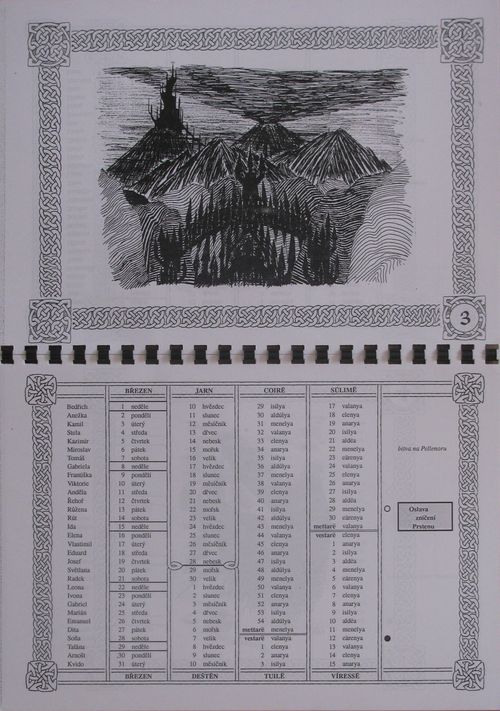 3
BŘEZEN JARN COIRË SÚLIMË
Bedřich 1 neděle 10 hvězdec 29 isilya 17 valanya
Anežka 2 pondělí 11 slunec 30 aldúlya 18 elenya
Kamil 3 úterý 12 měsíčník 31 menelya 19 anarya
Stela 4 středa 13 dřvec 32 valanya 20 isilya
Kazimír 5 čtvrtek 14 nebesk 33 elenya 21 aldëa
Miroslav 6 pátek 15 mořsk 34 anarya 22 menelya
Tomáš 7 sobota 16 velik 35 isilya 23 eärenya
bitva na Pellenoru
Gabriela 8 neděle 17 hvězdec 36 aldúlya 24 valanya
Františka 9 pondělí 18 slunec 37 menelya 25 elenya
Viktorie 10 úterý 19 měsíčník 38 valanya 26 anarya
Anděla 11 středa 20 dřvec 39 elenya 27 isilya
Řehoř 12 čtvrtek 21 nebesk 40 anarya 28 aldëa
Růžena 13 pátek 22 mořsk 41 isilya 29 menelya
Rút 14 sobota 23 velik 42 aldúlya 30 eärenya
Ida 15 neděle 24 hvězdec 43 menelya mettarë valanya
Oslava
zničení
Prstenu
Elena 16 pondělí 25 slunec 44 valanya vestarë elenya
Vlastimil 17 úterý 26 měsíčník 45 elenya 1 anarya
Eduard 18 středa 27 dřvec 46 anarya 2 isilya
Josef 19 čtvrtek 28 nebesk 47 isilya 3 aldëa
Světlana 20 pátek 29 mořsk 48 aldúlya 4 menelya
Radek 21 sobota 30 velik 49 menelya 5 eärenya
Leona 22 neděle 1 hvězdec 50 valanya 6 valanya
Ivona 23 pondělí 2 slunec 51 elenya 7 elenya
Gabriel 24 úterý 3 měsíčník 52 anarya 8 anarya
Marián 25 středa 4 dřvec 53 isilya 9 isilya
Emanuel 26 čtvrtek 5 nebesk 54 aldúlya 10 aldëa
Dita 27 pátek 6 mořsk mettarë menelya 11 menelya
Soňa 28 sobota 7 velik vestarë valanya 12 eärenya
Taťána 29 neděle 8 hvězdec 1 elenya 13 valanya
Arnošt 30 pondělí 9 slunec 2 anarya 14 elenya
Kvido 31 úterý 10 měsíčník 3 isilya 15 anarya
BŘEZEN DEŠTĚN TUILË VÍRESSË